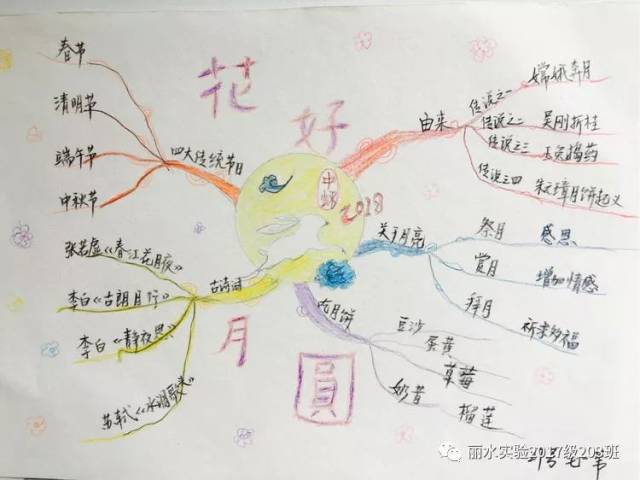 花好月圓
中秋
2018
四大传统节日
春节
清明节
端午节
中秋节
由来
传说之一
嫦娥奔月
传说之二
吴刚折桂
传说之三
玉兔捣药
传说之四
朱元璋月饼起义
关于月亮
祭月
感恩
赏月
增加情感
拜月
祈求多福
吃月饼
豆沙
蛋黄
草莓
奶昔
榴莲
古诗词
张若虚《春江花月夜》
李白《古朗月行》
李白《静夜思》
苏轼《水调歌头》
丽水实验2017级203班